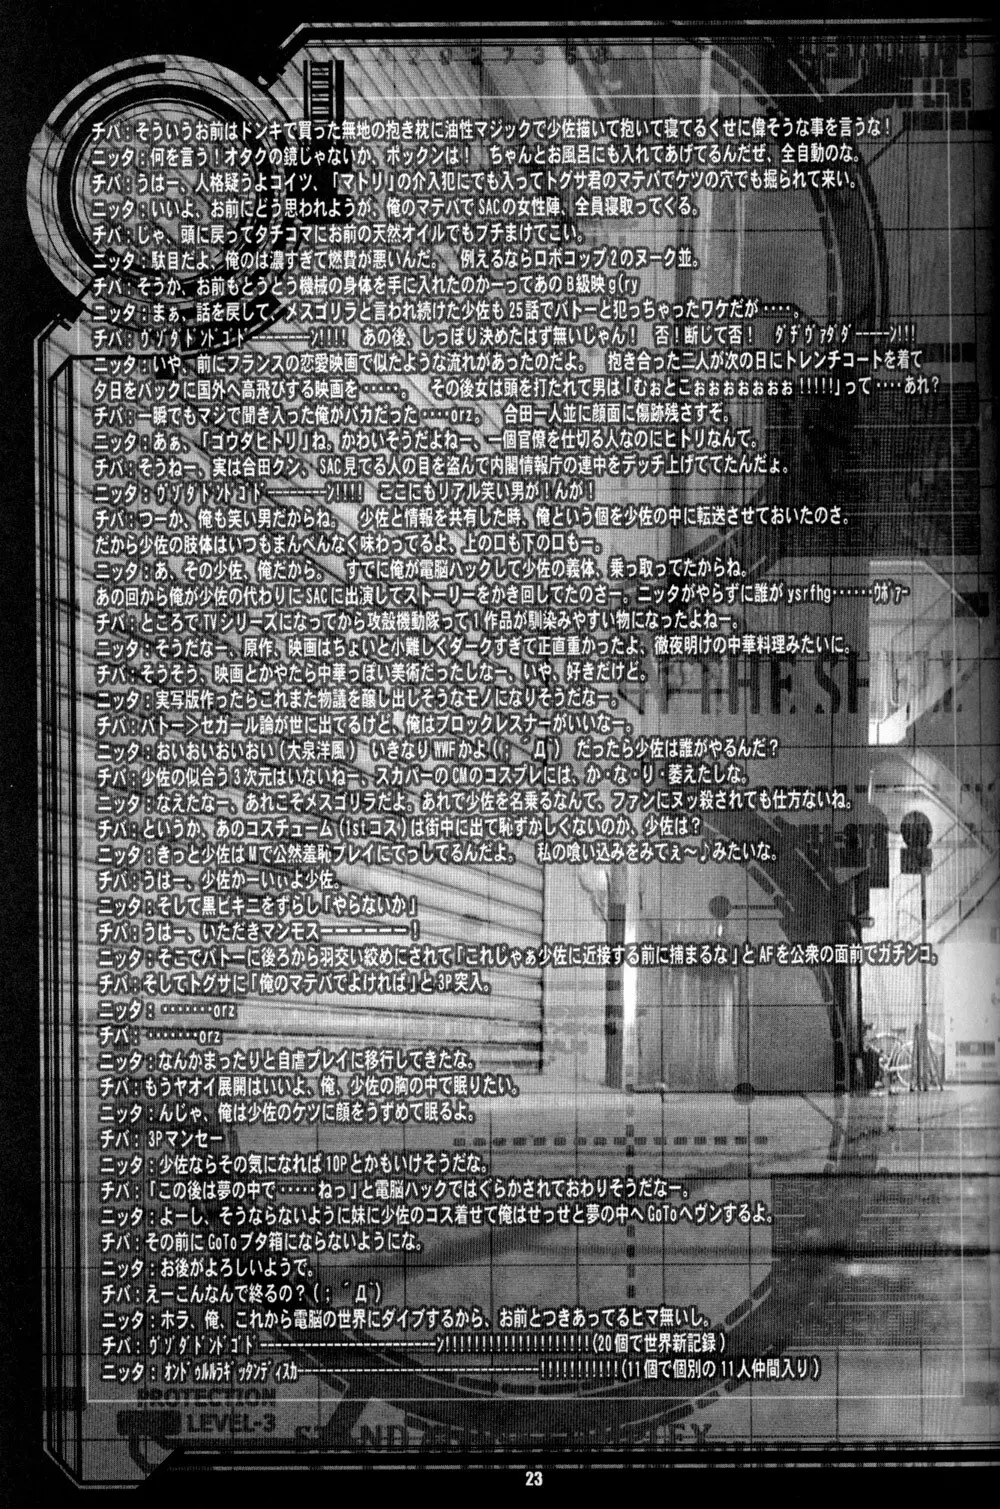 チバ：そういうお前はドンキで買った無地の抱き枕に油性マジックで少佐描いて抱いて寝てるくせに偉そうな事を言うな！
ニッタ：何を言う！オタクの鏡じゃないか、ボックンは！　ちゃんとお風呂にも入れてあげてるんだぜ、全自動のな。
チバ：うはー、人格疑うよコイツ、「マトリ」の介入犯にでも入ってトグサ君のマテバでケツの穴でも掘られて来い。
ニッタ：いいよ、お前にどう思われようが、俺のマテバでSACの女性陣、全員寝取ってくる。
チバ：じゃ、頭に戻ってタチコマにお前の天然オイルでもブチまけてこい。
ニッタ：駄目だよ、俺のは濃すぎて燃費が悪いんだ。　例えるならロボコップ2のヌーク並。
チバ：そうか、お前もとうとう機械の身体を手に入れたのかーってあのB級映g(ry
ニッタ：まぁ、話を戻して、メスゴリラと言われ続けた少佐も25話でバトーと犯っちゃったワケだが‥‥‥。
チバ：ｳﾞｿﾞﾀﾞﾄﾞﾝﾄﾞｺﾞﾄﾞ--------ﾝ!!!!　あの後、しっぽり決めたはず無いじゃん！　否！断じて否！　ﾀﾞﾁﾞｳﾞｧﾀﾞﾀﾞ-----ﾝ!!!
ニッタ：いや、前にフランスの恋愛映画で似たような流れがあったのだよ。　抱き合った二人が次の日にトレンチコートを着て
夕日をバックに国外へ高飛びする映画を‥‥‥。　その後女は頭を打たれて男は「むぉとこぉぉぉぉぉぉぉ!!!!!」って‥‥あれ？
チバ：一瞬でもマジで聞き入った俺がバカだった‥‥orz。　合田一人並に顔面に傷跡残さすぞ。
ニッタ：あぁ、「ゴウダヒトリ」ね。かわいそうだよねー、一個官僚を仕切る人なのにヒトリなんて。
チバ：そうねー、実は合田クン、SAC見てる人の目を盗んで内閣情報庁の連中をデッチ上げててたんだょ。
ニッタ：ｳﾞｿﾞﾀﾞﾄﾞﾝﾄﾞｺﾞﾄﾞ--------ﾝ!!!!　ここにもリアル笑い男が！んが！
チバ：つーか、俺も笑い男だからね。　少佐と情報を共有した時、俺という個を少佐の中に転送させておいたのさ。
だから少佐の肢体はいつもまんべんなく味わってるよ、上の口も下の口もー。
ニッタ：あ、その少佐、俺だから。　すでに俺が電脳ハックして少佐の義体、乗っ取ってたからね。
あの回から俺が少佐の代わりにSACに出演してストーリーをかき回してたのさー。ニッタがやらずに誰がysrfhg‥‥‥ｳﾎﾞｧｰ
チバ：ところでTVシリーズになってから攻殻機動隊って1作品が馴染みやすい物になったよねー。
ニッタ：そうだなー、原作、映画はちょいと小難しくダークすぎて正直重かったよ、徹夜明けの中華料理みたいに。
チバ：そうそう、映画とかやたら中華っぽい美術だったしなー、いや、好きだけど。
ニッタ：実写版作ったらこれまた物議を醸し出しそうなモノになりそうだなー。
チバ：バトー＞セガール論が世に出てるけど、俺はブロックレスナーがいいなー。
ニッタ：おいおいおいおい（大泉洋風）　いきなりWWFかよ(；゜Д゜)　だったら少佐は誰がやるんだ？
チバ：少佐の似合う3次元はいないねー、スカパーのCMのコスプレには、か・な・り・萎えたしな。
ニッタ：なえたなー、あれこそメスゴリラだよ。あれで少佐を名乗るなんて、ファンにヌッ殺されても仕方ないね。
チバ：というか、あのコスチューム（1stコス）は街中に出て恥ずかしくないのか、少佐は？
ニッタ：きっと少佐はMで公然羞恥プレイにてっしてるんだよ。　私の喰い込みをみてぇ～♪みたいな。
チバ：うはー、少佐かーいぃよ少佐。
ニッタ：そして黒ビキニをずらし「やらないか」
チバ：うはー、いただきマンモスーーーーーーー！
ニッタ：そこでバトーに後ろから羽交い絞めにされて「これじゃぁ少佐に近接する前に捕まるな」とAFを公衆の面前でガチンコ。
チバ：そしてトグサに「俺のマテバでよければ」と3P突入。
ニッタ：‥‥‥‥orz
チバ：‥‥‥‥orz
ニッタ：なんかまったりと自虐プレイに移行してきたな。
チバ：もうヤオイ展開はいいよ、俺、少佐の胸の中で眠りたい。
ニッタ：んじゃ、俺は少佐のケツに顔をうずめて眠るよ。
チバ：3Pマンセー
ニッタ：少佐ならその気になれば10Pとかもいけそうだな。
チバ：「この後は夢の中で‥‥‥ねっ」と電脳ハックではぐらかされておわりそうだなー。
ニッタ：よーし、そうならないように妹に少佐のコス着せて俺はせっせと夢の中へGoToヘヴンするよ。
チバ：その前にGoToブタ箱にならないようにな。
ニッタ：お後がよろしいようで。
チバ：えーこんなんで終るの？(；゜Д゜)
ニッタ：ホラ、俺、これから電脳の世界にダイブするから、お前とつきあってるヒマ無いし。
チバ：ｳﾞｿﾞﾀﾞﾄﾞﾝﾄﾞｺﾞﾄﾞ------------------------ﾝ!!!!!!!!!!!!!!!!!!!!(20個で世界新記録)
ニッタ：ｵﾝﾄﾞｩﾙﾙﾗｷﾞｯﾀﾝﾃﾞｨｽｶ--------------------------------!!!!!!!!!!!(11個で個別の11人仲間入り)
PROTECTION
LEVEL-3
23